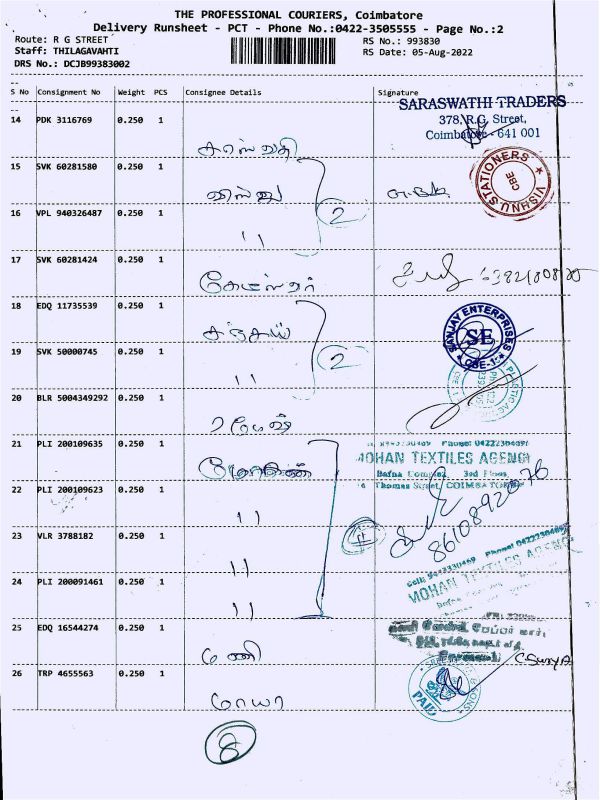 THE PROFESSIONAL COURIERS, Coimbatore
Delivery Runsheet - PCT - Phone No.:0422-3505555 - Page No.:2
Route: R G STREET
RS No.: 993830
Staff: THILAGAVAHTI
RS Date: 05-Aug-2022
DRS No.: DCJB99383002
S No Consignment No Weight PCS Consignee Details Signature
SARASWATHI TRADERS
378, R.G. Street,
Coimbatore - 641 001
14 PDK 3116769 0.250 1
சரஸ்வதி
15 SVK 60281580 0.250 1
விஷ்ணு
VISHNU STATIONERS
CBE
16 VPL 940326487 0.250 1
11
2
17 SVK 60281424 0.250 1
18 EDQ 11735539 0.250 1
சஞ்சய்
SANJAY ENTERPRISES
SE
CBE-1
19 SVK 50000745 0.250 1
11
2
20 BLR 5004349292 0.250 1
ரமேஷ்
21 PLI 200109635 0.250 1
மோகன்
MOHAN TEXTILES AGENCY
3rd Floor
Thomas Street, COIMBATORE
22 PLI 200109623 0.250 1
11
4
8610892076
23 VLR 3788182 0.250 1
11
MOHAN TEXTILES AGENC
24 PLI 200091461 0.250 1
11
25 EDQ 16544274 0.250 1
மணி
C. Surya
26 TRP 4655563 0.250 1
மாயா
PAID
8